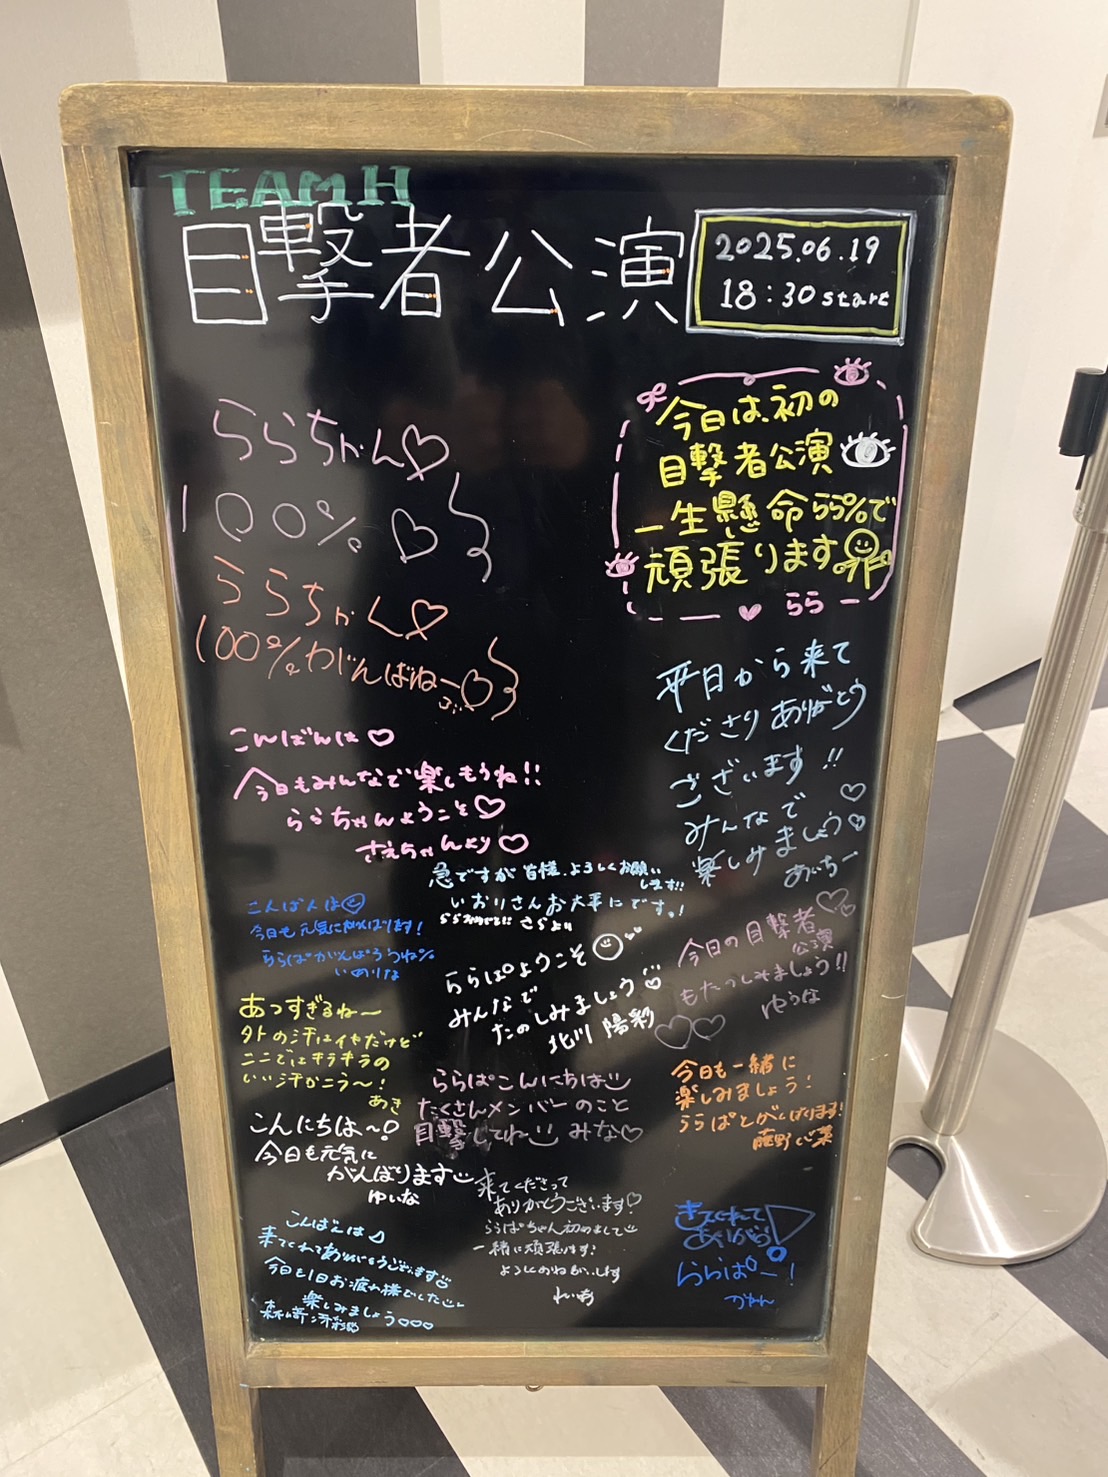 TEAM H
目撃者公演
2025.06.19
18:30 start
今日は初の
目撃者公演
一生懸命らら%で
頑張ります
らら
ららちゃん♡
100%♡
ららちゃん♡
100%わがんばねー
平日から来て
くださりありがとう
ございます!!
みんなで
楽しみましょう♡
あいちー
こんばんは♡
今日もみんなで楽しもうね!!
ららちゃんようこそ♡
さえちゃんより♡
急ですが皆様、よろしくお願い
します!!
いおりさんお大事にです。!
さらより
こんばんは
今日も元気にがんばります!
いのりな
ららぱようこそ
みんなで
たのしみましょう
北川 陽彩
今日の目撃者
公演
もたのしみましょう!!
ゆうな
あつすぎるねー
外の汗はイヤだけど
ここではキラキラの
いい汗かこう〜!
あき
ららぱこんにちは
たくさんメンバーのこと
目撃してね みな♡
今日も一緒に
楽しみましょう!
ららぱとがんばります!
藤野心葉
こんにちは〜!
今日も元気に
がんばります
ゆいな
来てくださって
ありがとうございます♡
ららぱちゃん初めまして
一緒に頑張ります!
よろしくおねがいします
れいあ
こんばんは♪
来てくれてありがとうございます
今日も1日お疲れ様でした
楽しみましょう○○○
きてくれて
ありがとう!
ららぱー!